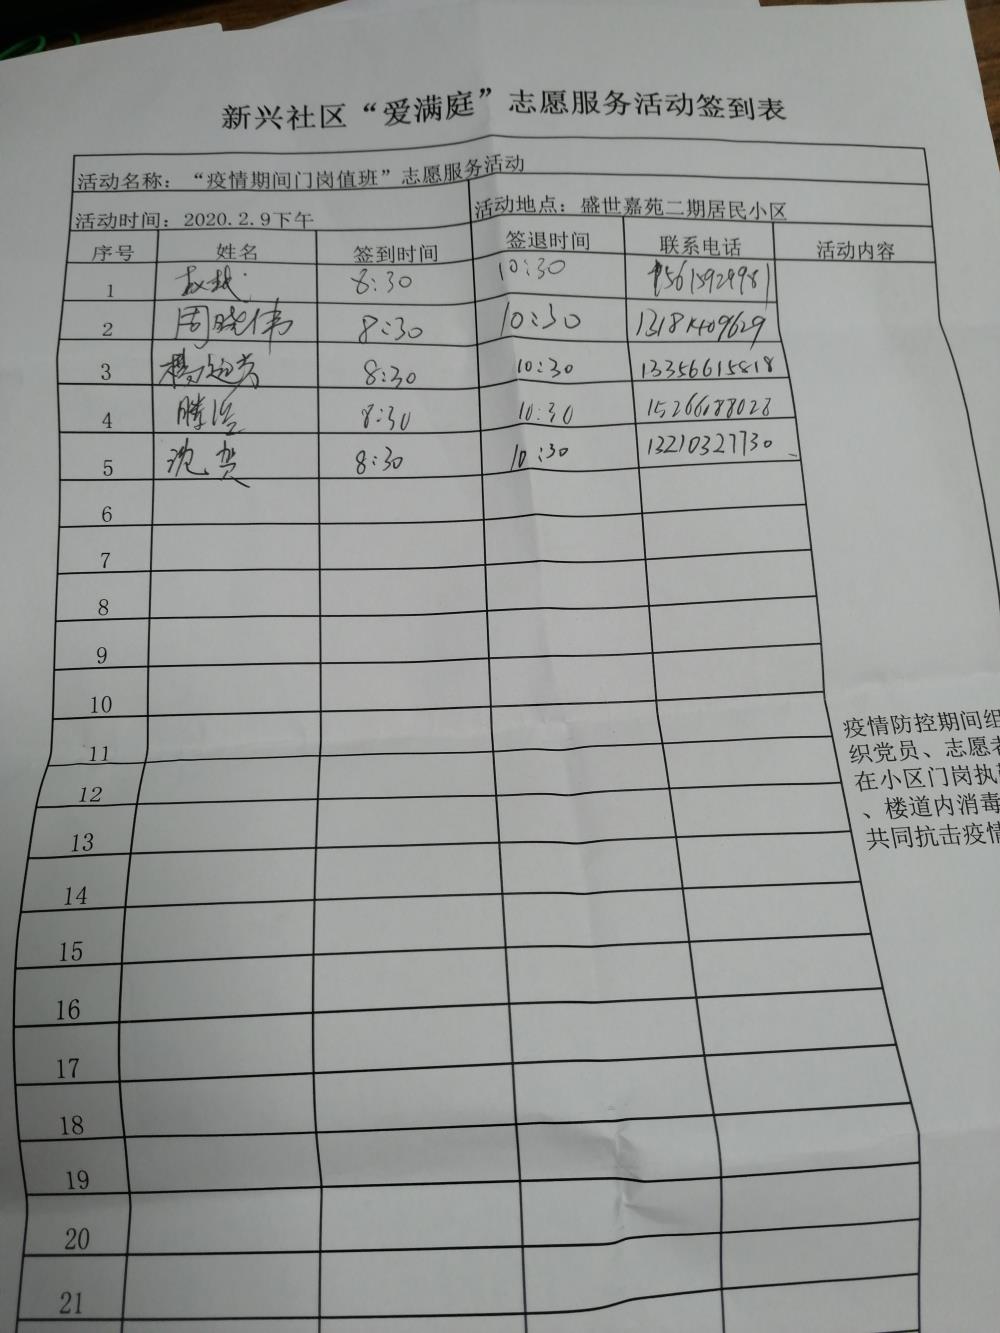 新兴社区“爱满庭”志愿服务活动签到表
活动名称：“疫情期间门岗值班”志愿服务活动
活动时间：2020.2.9下午 活动地点：盛世嘉苑二期居民小区
序号 姓名 签到时间 签退时间 联系电话 活动内容
1 赵越 8:30 10:30 15615929981
2 周晓伟 8:30 10:30
3 8:30 10:30 13356615818
4 8:30 10:30 15266188028
5 沈贺 8:30 10:30 13210327730
6
7
8
9
10
11
12
13
14
15
16
17
18
19
20
21
疫情防控期间组
织党员、志愿者
在小区门岗执
、楼道内消毒
共同抗击疫情